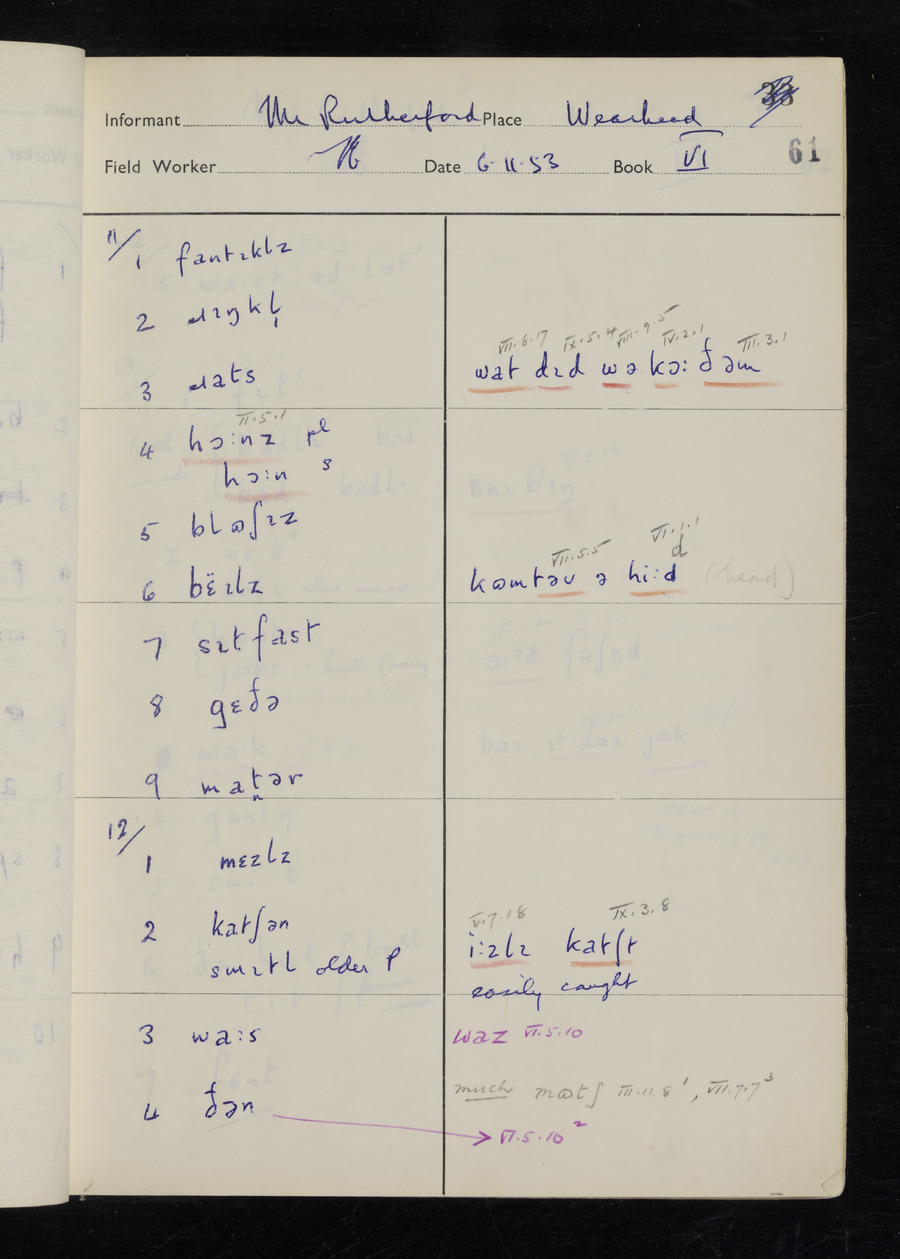 Informant Mr Rutherford Place Wearhead 33
Field Worker Date 6.11.53 Book VI 61
11/
1 fantɪklz
2 ɹɪŋkl̩
3 ɹats
VII.8.17 IX.5.4 VIII.9.5 IV.2.1 III.3.1
wat dɪd wə kɔ: ðəm
II.5.1
4 hɔ:nz pl
hɔ:n s
5 blɷʃɪz
6 bëɪlz
VII.5.5 VI.1.1
d
kɷmtəv ə hi:d (head)
7 sɪtfast
8 gɛðə
9 mat̪ər
12/
1 mɛzlz
2 katʃən
smɪtl older P
V.7.18 IX.3.8
i:zlɪ katʃt
easily caught
3 wa:s
waz VI.5.10
4 ðən
much mɷtʃ III.11.8¹, VII.7.7³
VI.5.10²